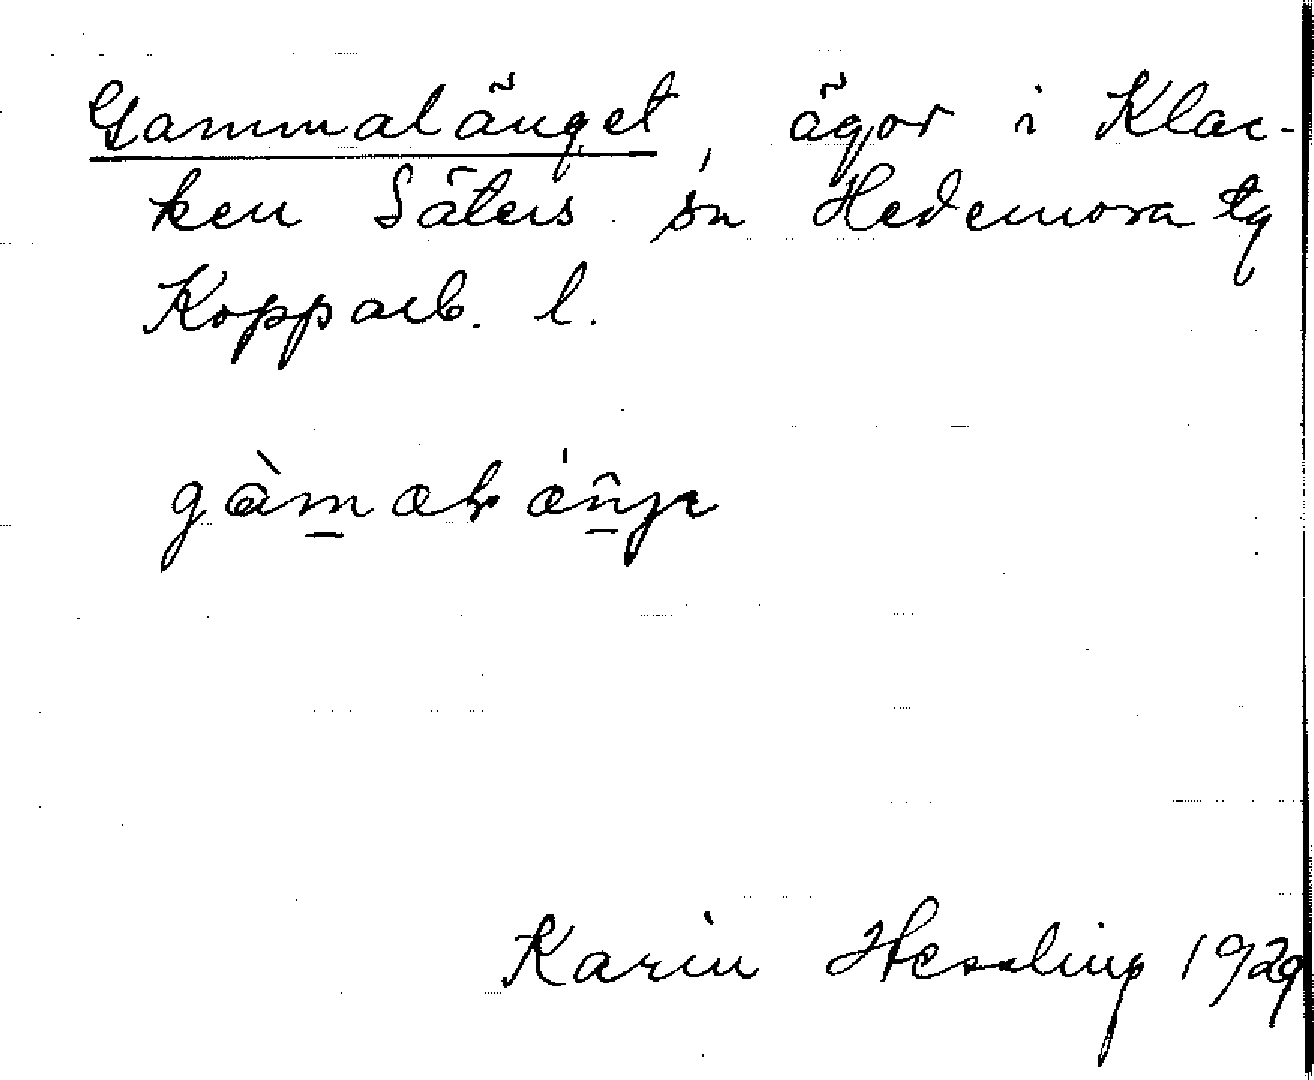 Gammalänget, ägor i Klac-
ken Säters sn Hedemora tg
Kopparb. l.
gàmalänjə
Karin Hessling 1929